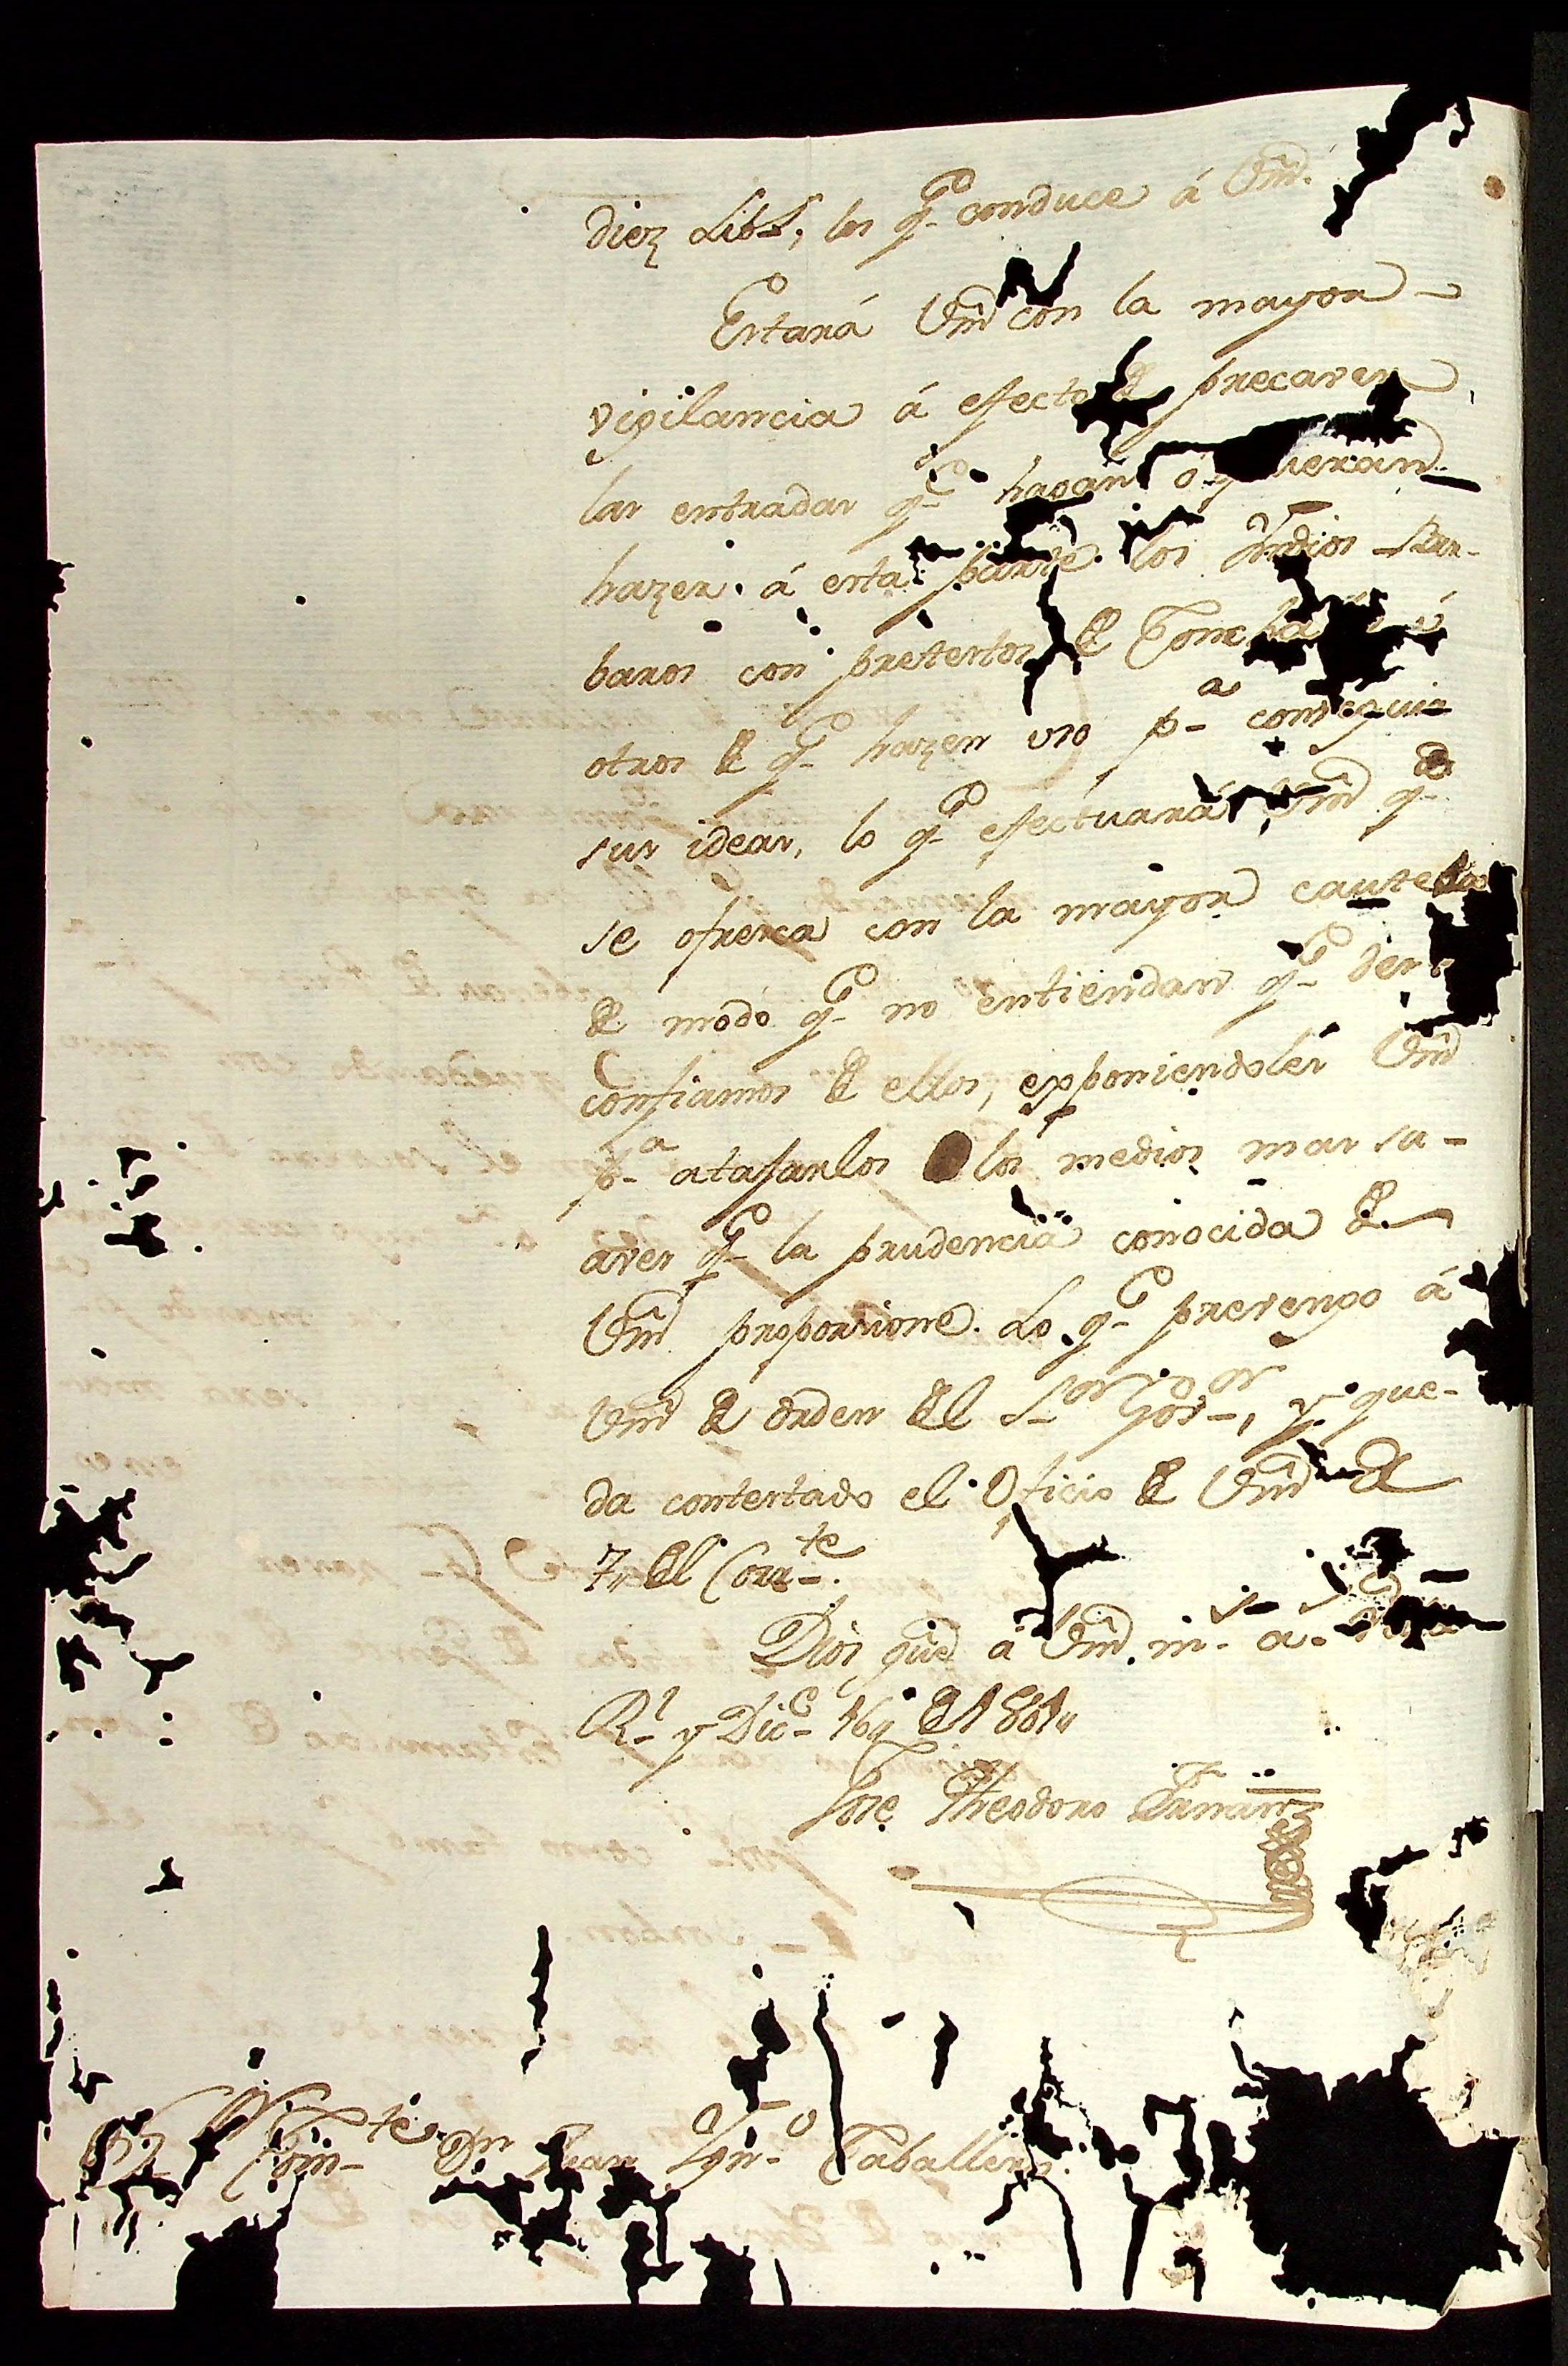 diez Libs, los qe conduce á Vmd.
Estará Vmd con la mayor
vigilancia á efecto de precaver
las entradas qe hagan ó
hazer á esta parte los Yndios Bar-
baros con pretextos de ú
otros de qe hazen uso pa conseguir
sus ideas, lo qe efectuará Vmd qdo
se ofresca con la mayor cautela
de modo qe no entiendan qe des-
confiamos de ellos, exponiendoles Vmd
pa atajarlos los medios mas su-
aves qe la prudencia conocida de
Vmd proporcione. Lo qe prevengo á
Vmd de orden del Sor Gor, y que-
da contestado el Oficio de Vmd de
7,, del Corrte.
Dios gue á Vmd. ms as
Rl y Dice 16,, de 1801,,
Jose Theodoro Fernanz
Comte Dn Juan Ygno Caballero.